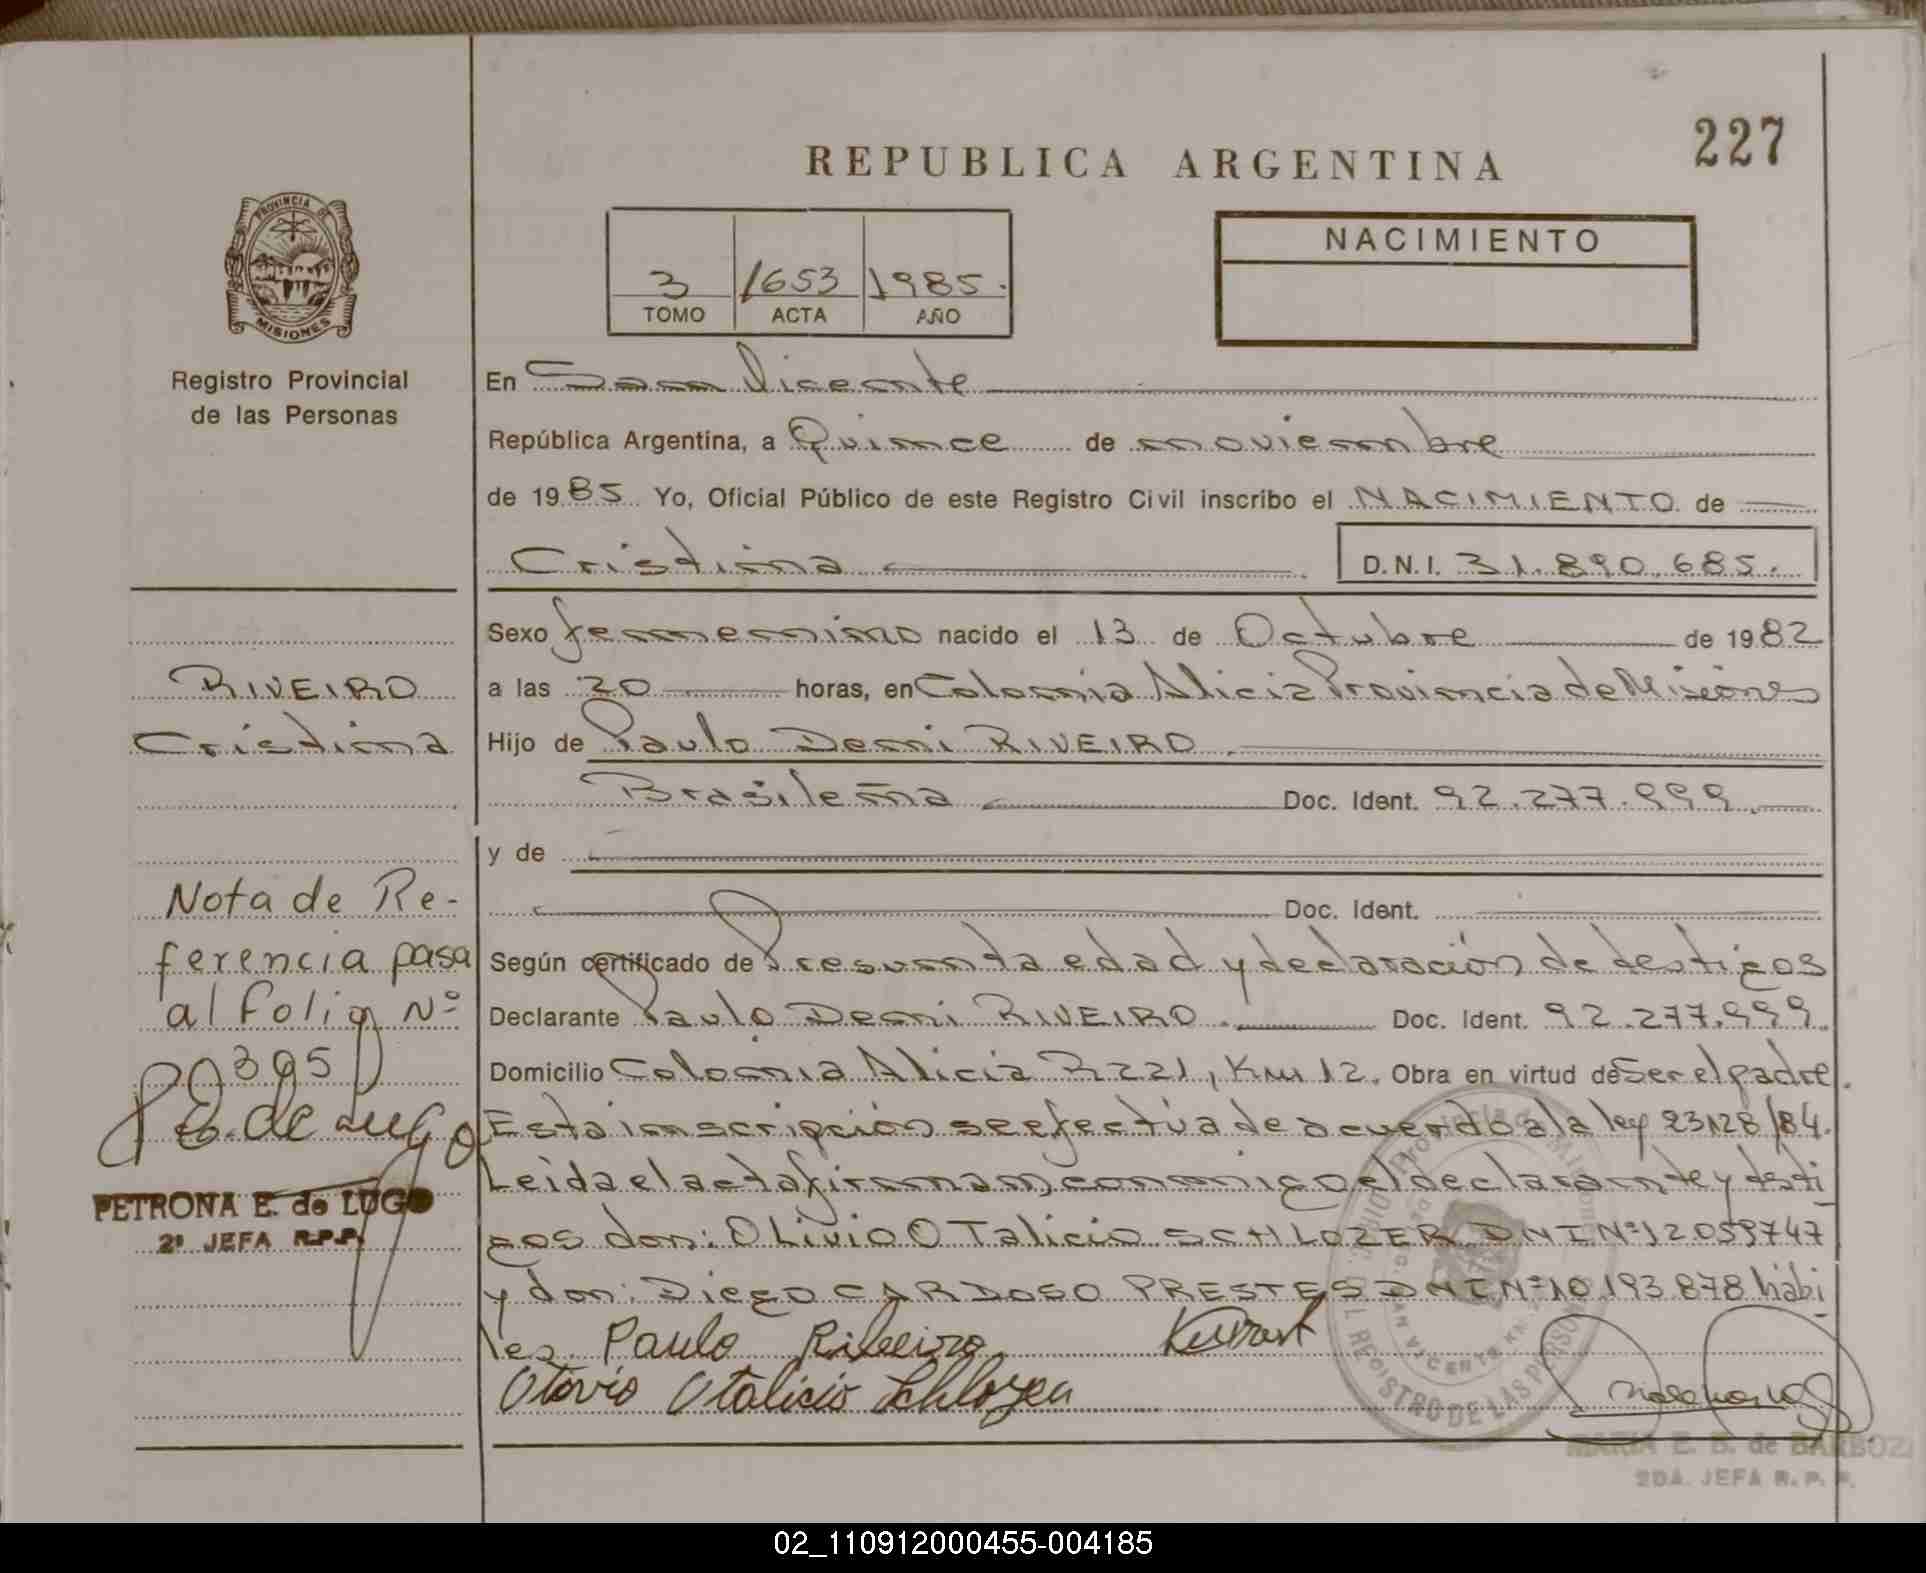 227
REPUBLICA ARGENTINA
PROVINCIA DE
MISIONES
Registro Provincial
de las Personas
3 1653 1985.
TOMO ACTA AÑO
NACIMIENTO
En San Vicente
República Argentina, a Quince de noviembre
de 19 85 Yo, Oficial Público de este Registro Civil inscribo el NACIMIENTO de
Cristina D.N.I. 31.890.685.
Sexo femenino nacido el 13 de Octubre de 19 82
a las 20 horas, en Colonia Alicia Provincia de Misiones
Hijo de Paulo Deni RIVEIRO.
Brasileña Doc. Ident. 92.277.999.
y de
Doc. Ident.
Según certificado de Presunta edad y declaración de testigos
Declarante Paulo Deni RIVEIRO. Doc. Ident. 92.277.999.
Domicilio Colonia Alicia R221, Km 12. Obra en virtud de Ser el padre.
Esta inscripción se efectúa de acuerdo a la ley 23128/84.
Leida el acta firman conmigo el declarante y testi
gos don: OLivio OTalicio SCHLOZER DNI Nº 12059747
y don: Diego CARDOSO PRESTES DNI Nº 10.193.878 hábi
les. Paulo Ribeiro
Otavio Otalicio Schlozer
RIVEIRO
Cristina
Nota de Re-
ferencia pasa
al folio Nº
395
P. E. de Lugo
PETRONA E. de LUGO
2ª JEFA R.P.P.
Provincia de Misiones
SAN VICENTE
REGISTRO DE LAS PERSONAS
MARIA E. B. de BARBOZ
2DA. JEFA R. P. P.
02_110912000455-004185